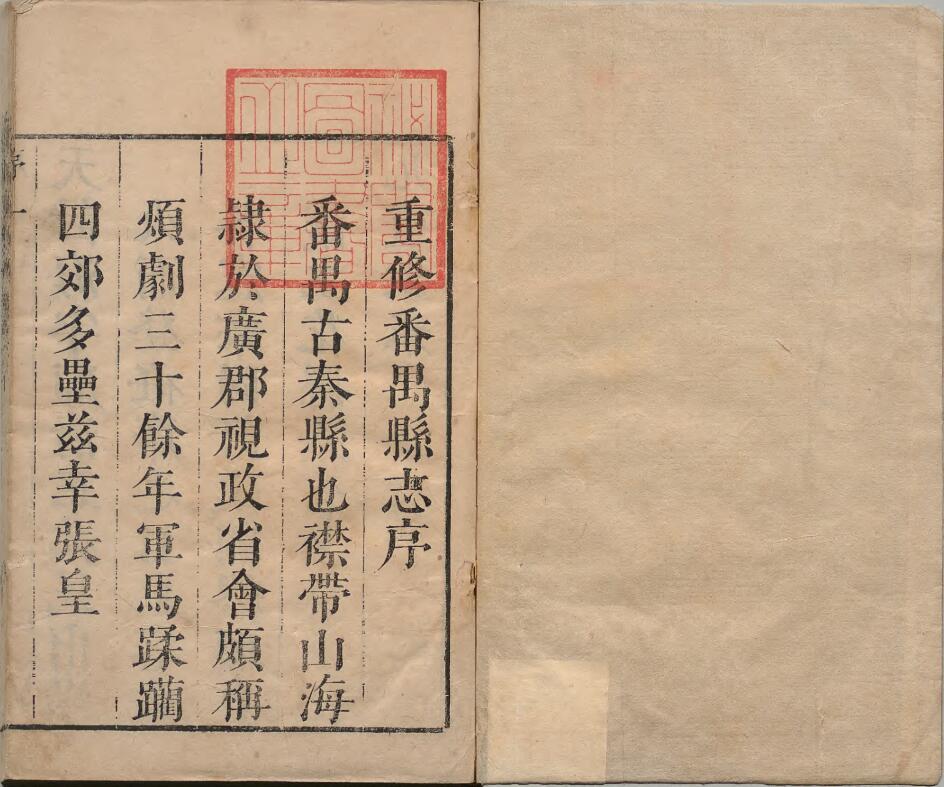 重修番禺縣志序
番禺古秦縣也襟帶山海
隷於廣郡視政省會頗稱
煩劇三十餘年軍馬蹂躪
四郊多壘兹幸張皇
序 一